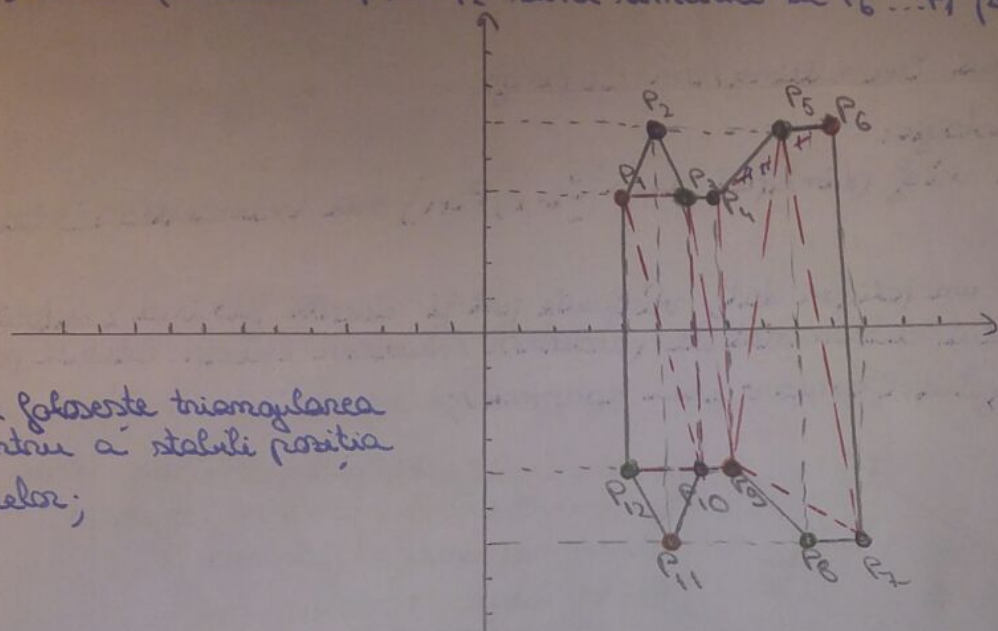 P6 ... P1
P2
P5
P6
P1
P3
P4
folosește triangularea
a stabili poziția
elor;
P12
P10
P9
P11
P8
P7